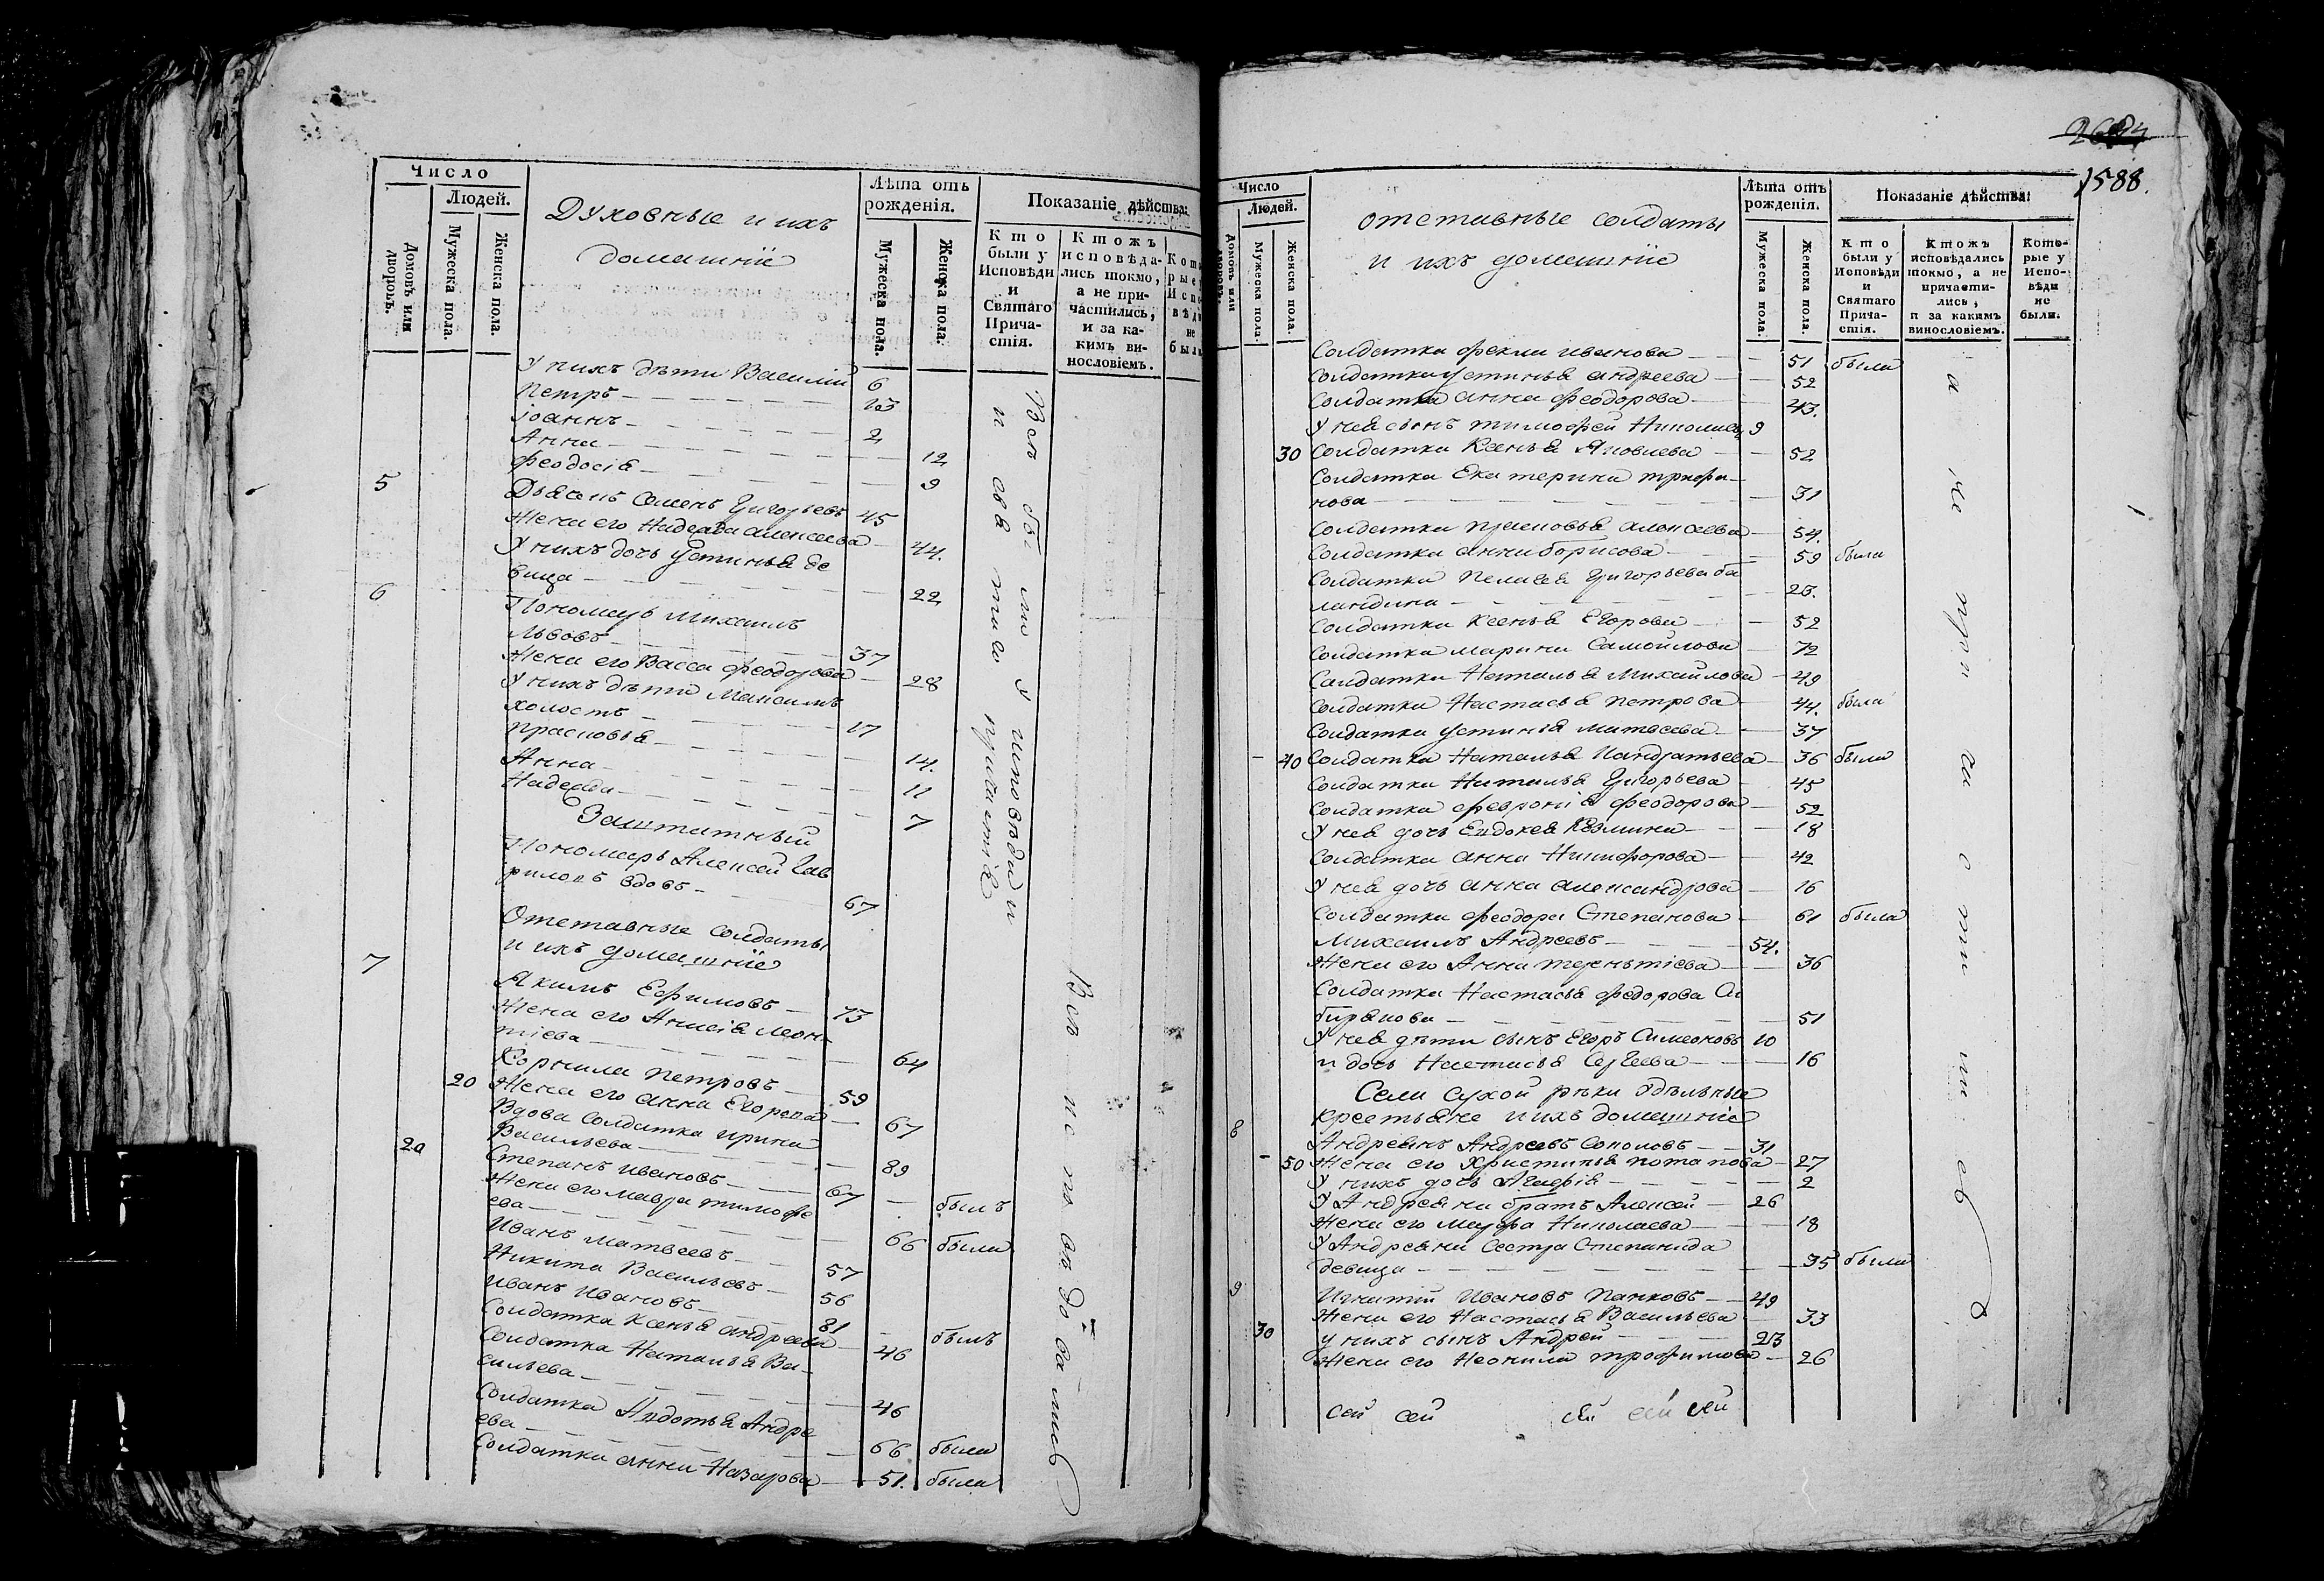 Число
Людей.
Домовъ или дворовъ.
Мужеска пола.
Женска пола.
Духовные и ихъ
домашнїе
Лѣта отъ рожденія.
Мужеска пола.
Женска пола.
Показаніе дѣйства:
Кто были у Исповѣди и Святаго Причастія.
Ктожъ исповѣдались токмо, а не причастились, и за какимъ винословіемъ.
У нихъ дѣти Василїй 6
Петръ
Іоаннъ 2
Анна 12
Феодосія 9
5 Дьяконъ Семенъ Григорьевъ 45
Жена его Надежда Алексеева 44.
У нихъ дочь Устинья де
вица 22
6 Пономарь Михаилъ
Львовъ 37
Жена его Васса Феодорова 28
У нихъ дѣти Максимъ
холостъ 17
Прасковья 14.
Анна 11
Надежда 7
Заштатный
Пономарь Алексей Гав
риловъ вдовъ 67
Отставные солдаты
и ихъ домашнїе
7 Якимъ Ефимовъ 73
Жена его Анисія Леон-
тіева 64
Корнила Петровъ 59
20 Жена его Анна Егорова 67
Вдова Солдатка Ирина
Васильева 89
20 Степанъ Ивановъ 67 былъ
Жена его Мавра Тимофе
ева 66 была
Иванъ Матвеевъ 57
Никита Васильевъ 56
Иванъ Ивановъ 81 былъ
Солдатка Ксенья Андреева 46
Солдатка Наталья Ва-
сильева 46
Солдатка Авдотья Андре
ева 66 была
Солдатка Анна Назарова 51. была
Всѣ были у исповѣди
и свя таго причастія
Всѣ исповѣдовались
1588.
Число
Людей.
Домовъ или дворовъ.
Мужеска пола.
Женска пола.
отставные солдаты
и ихъ домашнїе
Лѣта отъ рожденія.
Мужеска пола.
Женска пола.
Показаніе дѣйства:
Кто были у Исповѣди и Святаго Причастія.
Ктожъ исповѣдались токмо, а не причастились, и за какимъ винословіемъ.
Которые у Исповѣди не были.
Солдатка Фекла Иванова 51 была
Солдатка Устинья Андреева 52
Солдатка Анна Феодорова 43.
У нея сынъ Тимофей Николаевъ 9
30 Солдатка Ксенья Яковлева 52
Солдатка Екатерина Трифо-
нова 31
Солдатка Прасковья Алексеева 54.
Солдатка Анна Борисова 59 была
Солдатка Пелагея Григорьева Ба
ландина
Солдатка Ксенья Егорова 52
Солдатка Марина Самойлова 72
Солдатка Наталья Михайлова 49
Солдатка Настасья Петрова 44. была
Солдатка Устинья Матвеева 37
40 Солдатка Наталья Кандратьева 36 была
Солдатка Наталья Григорьева 45
Солдатка Февронія Феодорова 52
У нея дочь Евдокея Козмина 18
Солдатка Анна Никифорова 42
У нея дочь Анна Александрова 16
Солдатка Феодора Степанова 61 была
Михаилъ Андреевъ 54.
Жена его Анна Терентіева 36
Солдатка Настасья Федорова Си
бирякова 51
У нея дѣти сынъ Егоръ Симеоновъ 10
и дочь Настасья Сергеева 16
Села Сухой рѣки Удѣльные
Крестьяне и ихъ домашнїе
8 Андреянъ Андреевъ Сополовъ 31
50 Жена его Христинья Потапова 27
У нихъ дочь Агафія 2
У Андреяна братъ Алексей 26
Жена его Марфа Николаева 18
У Андреяна сестра Степанида
девица 35 была
9 Игнатїй Ивановъ Панковъ 49
Жена его Настасья Васильева 33
30 у нихъ сынъ Андрей 23
Жена его Неонила Трофимова 26
а не причастились
сей сей сей сей сей